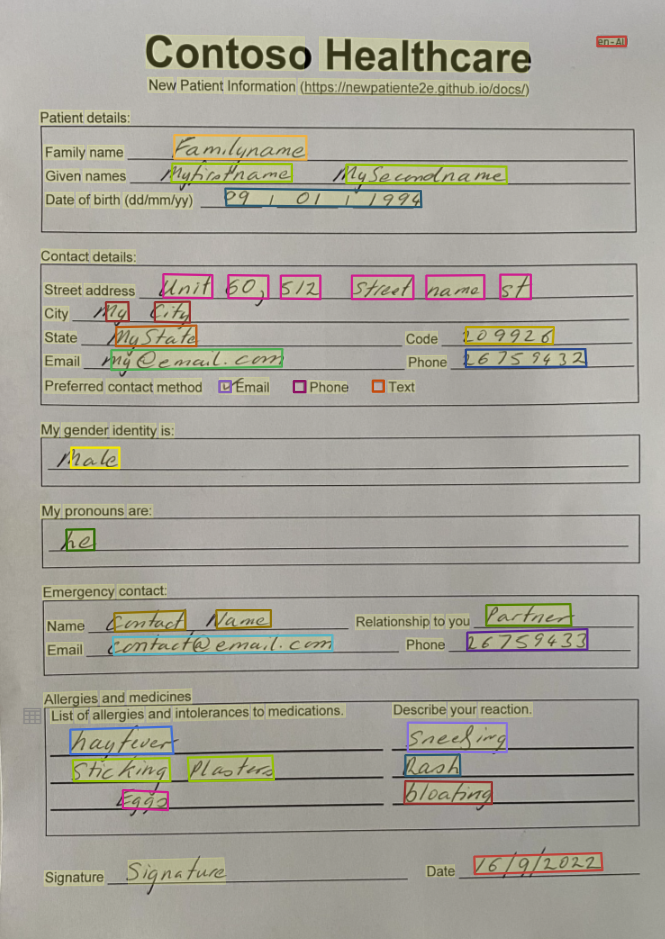 Contoso Healthcare
en-AU
New Patient Information (https://newpatiente2e.github.io/docs/)
Patient details:
Family name Familyname
Given names Myfirstname MySecondname
Date of birth (dd/mm/yy) 09 / 01 / 1994
Contact details:
Street address Unit 60, 512 Street name st
City My City
State MyState Code 209926
Email my@email.com Phone 26759432
Preferred contact method Email Phone Text
My gender identity is:
Male
My pronouns are:
he
Emergency contact:
Name Contact Name Relationship to you Partner
Email contact@email.com Phone 26759433
Allergies and medicines
List of allergies and intolerances to medications. Describe your reaction.
hayfever Sneezing
Sticking Plasters Rash
Eggs bloating
Signature Signature Date 16/9/2022